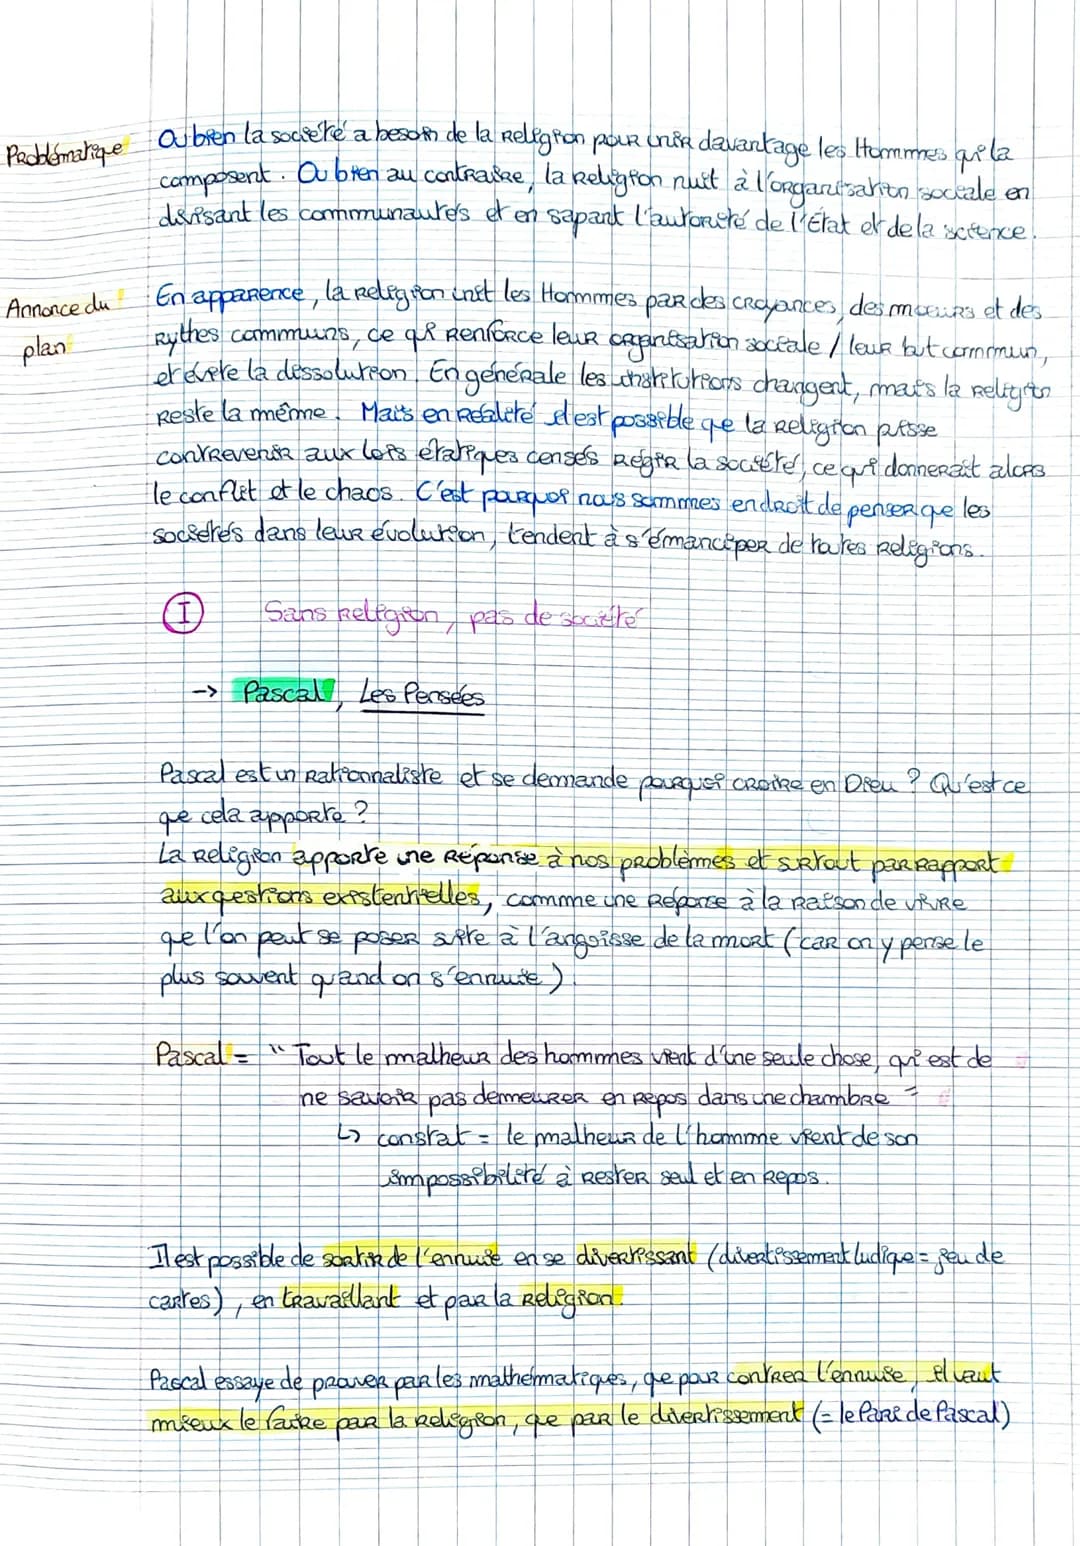 Problématique Ou bien la société a besoin de la Religion pour unir davantage les Hommes qui la
composent. Ou bien au contraire, la Religion nuit à l'organisation sociale en
divisant les communautés et en sapant l'autorité de l'État et de la science.
Annonce du En apparence, la Religion unit les Hommes par des croyances, des mœurs et des
plan Rythes communs, ce qui Renforce leur organisation sociale / leur but commun,
et évite la dessolution. En générale les institutions changent, mais la religion
Reste la même. Mais en Réalité il est possible que la Religion puisse
contrevenir aux lois étatiques censés Régir la société, ce qui donnerait alors
le conflit et le chaos. C'est pourquoi nous sommes en droit de penser que les
sociétés dans leur évolution, tendent à s'émanciper de toutes Religions.
I Sans Religion, pas de société
-> Pascal, Les Pensées
Pascal est un Rationnaliste et se demande pourquoi croire en Dieu ? Qu'est ce
que cela apporte ?
La Religion apporte une Réponse à nos problèmes et surtout par Rapport
aux questions existentielles, comme une Réponse à la Raison de vivre
que l'on peut se poser suite à l'angoisse de la mort (car on y pense le
plus souvent quand on s'ennuie).
Pascal = " Tout le malheur des hommes vient d'une seule chose, qui est de
ne savoir pas demeurer en Repos dans une chambre "
↳ constat = le malheur de l'homme vient de son
impossibilité à Rester seul et en Repos.
Il est possible de sortir de l'ennuie en se divertissant (divertissement ludique = jeu de
cartes), en travaillant et par la Religion.
Pascal essaye de prouver par les mathématiques, que pour contrer l'ennuie, il vaut
mieux le faire par la Religion, que par le divertissement (= le Pari de Pascal)